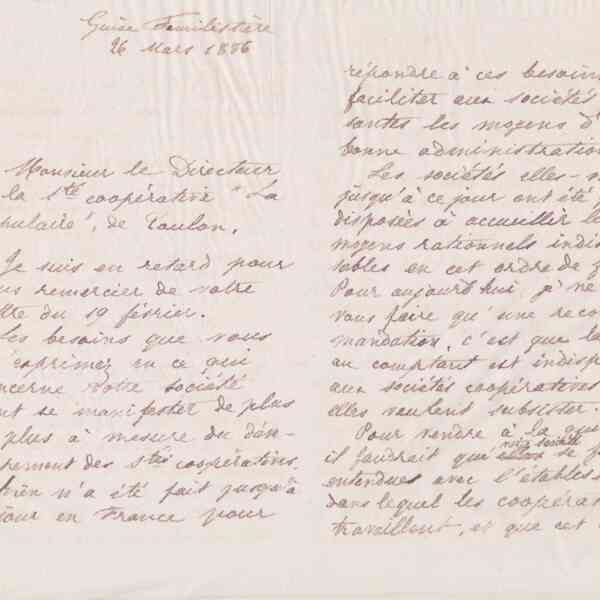 Guise Familistère
26 Mars 1886
Monsieur le Directeur
la Sté coopérative "La
pulaire", de Toulon.
Je suis en retard pour
us remercier de votre
tre du 19 février.
Les besoins que vous
exprimez en ce qui
ncerne votre société
nt se manifester de plus
plus à mesure du dén-
rement des Stés coopératives.
Rien n'a été fait jusqu'à
jour en France pour
répondre à ces besoins
faciliter aux sociétés
santes les moyens d'
bonne administration
Les sociétés elles-
jusqu'à ce jour ont été
disposées à accueillir le
moyens rationnels indis
sables en cet ordre de
Pour aujourd'hui, je ne
vous faire qu'une recom
mandation, c'est que la
au comptant est indisp
aux sociétés coopératives
elles veulent subsister.
Pour vendre à la
il faudrait que votre société se
entendues avec l'établiss
dans lequel les coopéra
travaillent, et que cet